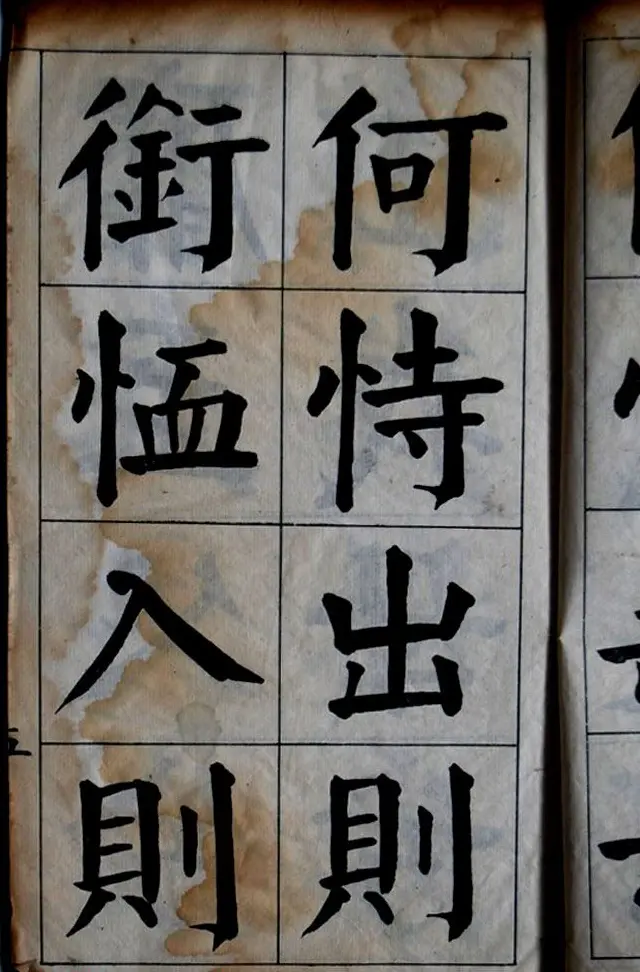 何恃出則
銜恤入則
五